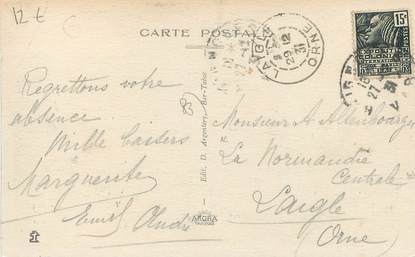 12 €
CARTE POSTALE
LAIGLE
29 12
31
ORNE
15c
EXPOSITION
COLONIALE
INTERNATIONALE
PARIS
Regrettons votre
absence.
Mille baisers
Marguerite
Emile André
Edit. D. Bar-Tabac
ARGRA
Monsieur A.
La Normandie
Centrale
Laigle
(Orne)